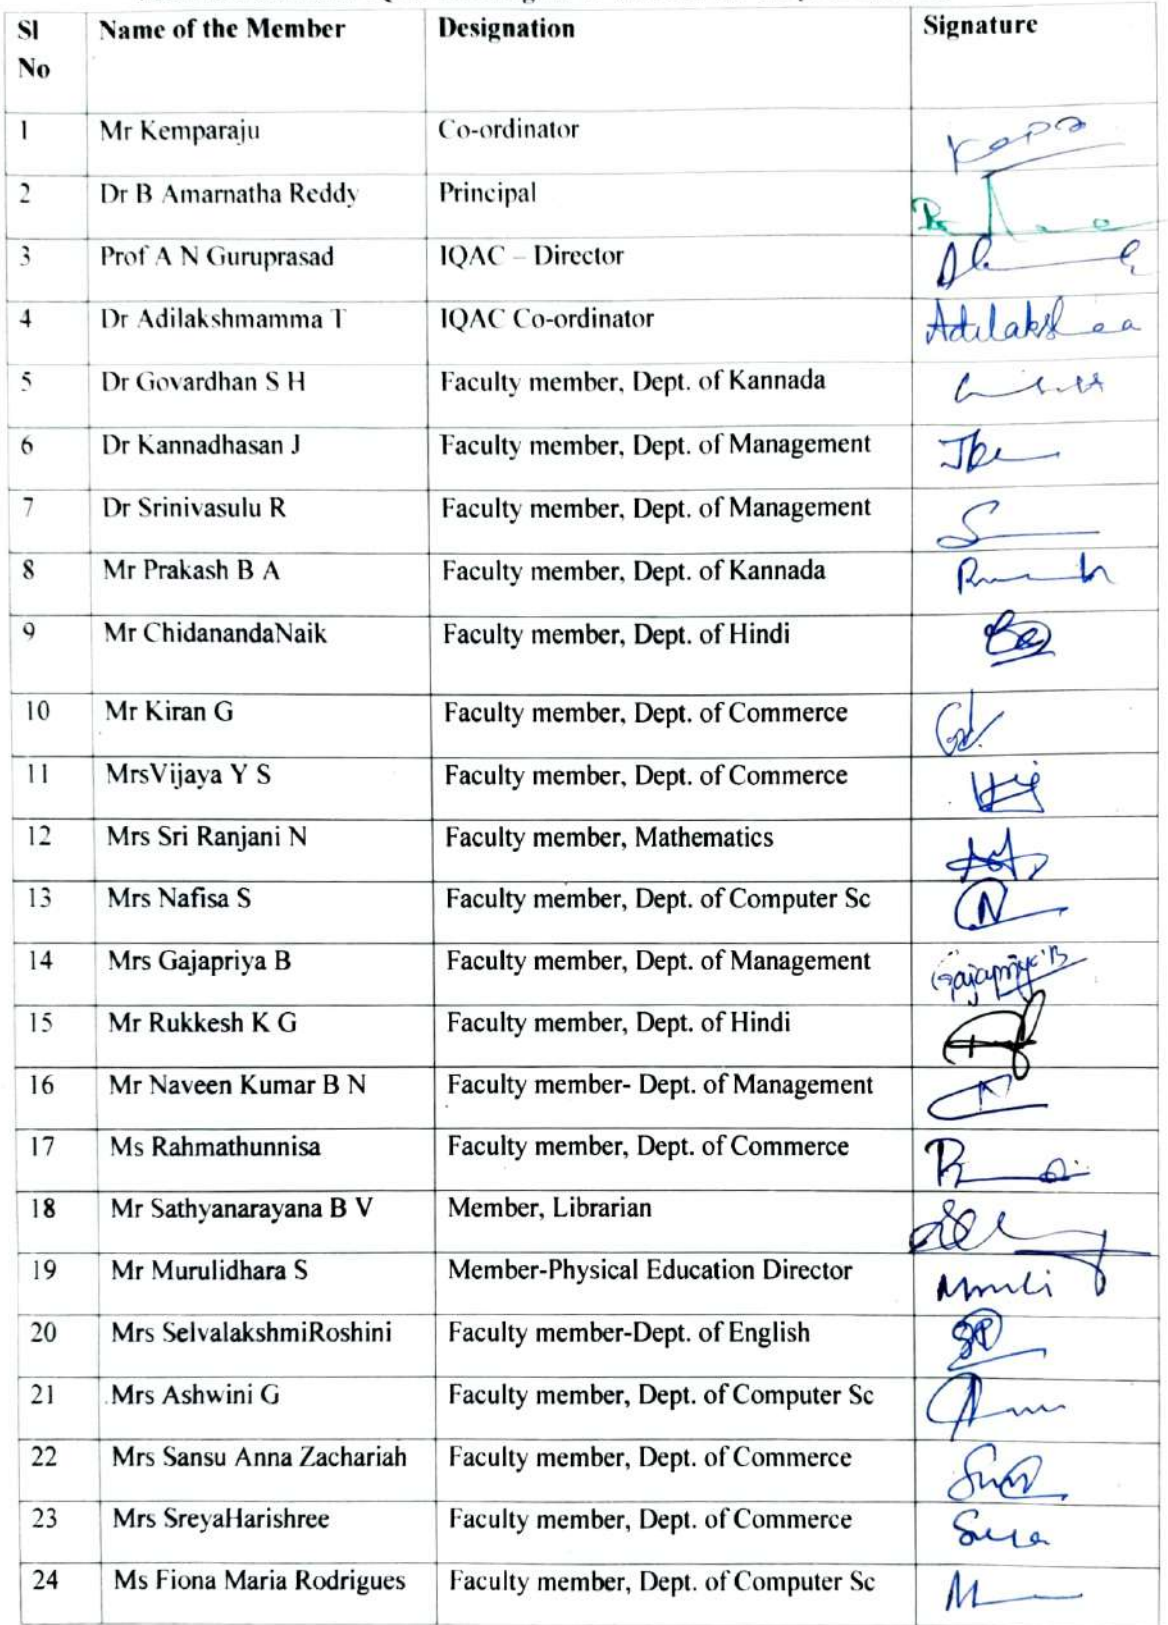 Sl No Name of the Member Designation Signature
1 Mr Kemparaju Co-ordinator
2 Dr B Amarnatha Reddy Principal
3 Prof A N Guruprasad IQAC – Director
4 Dr Adilakshmamma T IQAC Co-ordinator
5 Dr Govardhan S H Faculty member, Dept. of Kannada
6 Dr Kannadhasan J Faculty member, Dept. of Management
7 Dr Srinivasulu R Faculty member, Dept. of Management
8 Mr Prakash B A Faculty member, Dept. of Kannada
9 Mr ChidanandaNaik Faculty member, Dept. of Hindi
10 Mr Kiran G Faculty member, Dept. of Commerce
11 MrsVijaya Y S Faculty member, Dept. of Commerce
12 Mrs Sri Ranjani N Faculty member, Mathematics
13 Mrs Nafisa S Faculty member, Dept. of Computer Sc
14 Mrs Gajapriya B Faculty member, Dept. of Management Gajapriya B
15 Mr Rukkesh K G Faculty member, Dept. of Hindi
16 Mr Naveen Kumar B N Faculty member- Dept. of Management
17 Ms Rahmathunnisa Faculty member, Dept. of Commerce
18 Mr Sathyanarayana B V Member, Librarian
19 Mr Murulidhara S Member-Physical Education Director
20 Mrs SelvalakshmiRoshini Faculty member-Dept. of English
21 Mrs Ashwini G Faculty member, Dept. of Computer Sc
22 Mrs Sansu Anna Zachariah Faculty member, Dept. of Commerce
23 Mrs SreyaHarishree Faculty member, Dept. of Commerce
24 Ms Fiona Maria Rodrigues Faculty member, Dept. of Computer Sc